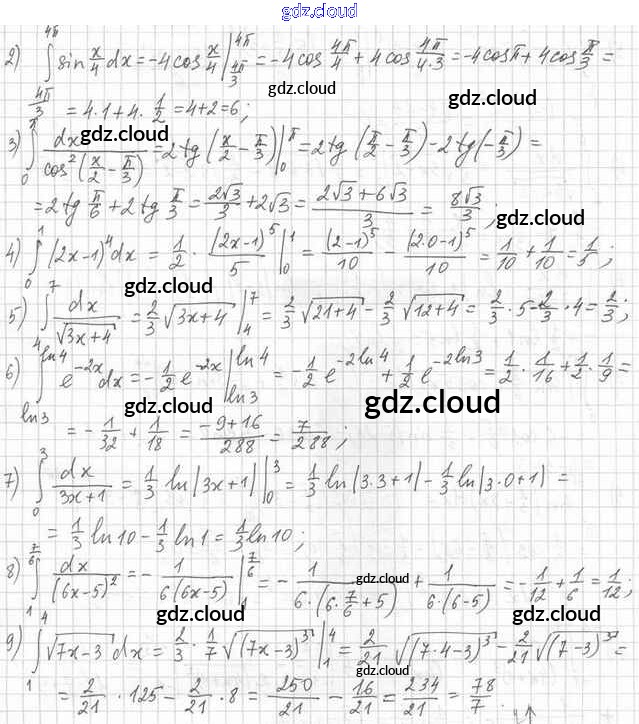 gdz.cloud
2) ∫_{4π/3}^{4π} sin x/4 dx = -4cos x/4 |_{4π/3}^{4π} = -4cos 4π/4 + 4cos 4π/(4·3) = -4cosπ + 4cos π/3 =
= 4·1 + 4·1/2 = 4+2 = 6;
gdz.cloud
3) ∫_0^π dx/cos²(x/2 - π/3) = 2tg(x/2 - π/3)|_0^π = 2tg(π/2 - π/3) - 2tg(-π/3) =
gdz.cloud gdz.cloud
= 2tg π/6 + 2tg π/3 = 2√3/3 + 2√3 = (2√3+6√3)/3 = 8√3/3;
gdz.cloud
4) ∫_0^1 (2x-1)^4 dx = 1/2 · (2x-1)^5/5 |_0^1 = (2-1)^5/10 - (2·0-1)^5/10 = 1/10 + 1/10 = 1/5;
gdz.cloud gdz.cloud
5) ∫_4^7 dx/√(3x+4) = 2/3 √(3x+4) |_4^7 = 2/3 √(21+4) - 2/3 √(12+4) = 2/3 · 5 - 2/3 · 4 = 2/3;
6) ∫_{ln3}^{ln4} e^{-2x} dx = -1/2 e^{-2x} |_{ln3}^{ln4} = -1/2 e^{-2ln4} + 1/2 e^{-2ln3} = 1/2 · 1/16 + 1/2 · 1/9 =
gdz.cloud
= -1/32 + 1/18 = (-9+16)/288 = 7/288;
7) ∫_0^3 dx/(3x+1) = 1/3 ln|3x+1| |_0^3 = 1/3 ln|3·3+1| - 1/3 ln|3·0+1| =
gdz.cloud
= 1/3 ln10 - 1/3 ln1 = 1/3 ln10;
8) ∫_1^{7/6} dx/(6x-5)² = -1/(6(6x-5)) |_1^{7/6} = -1/(6·(6·7/6+5)) + 1/(6·(6-5)) = -1/12 + 1/6 = 1/12;
gdz.cloud
gdz.cloud gdz.cloud
9) ∫_1^4 √(7x-3) dx = 2/3 · 1/7 √((7x-3)³) |_1^4 = 2/21 √((7·4-3)³) - 2/21 √((7-3)³) =
gdz.cloud
= 2/21 · 125 - 2/21 · 8 = 250/21 - 16/21 = 234/21 = 78/7.
gdz.cloud